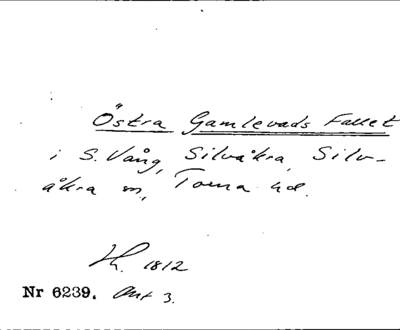 Östra Gamlevads Fallet
i S. Vång, Silvåkra, Silv-
åkra sn, Torna hd.
Kh. 1812
Nr 6239. Akt 3.